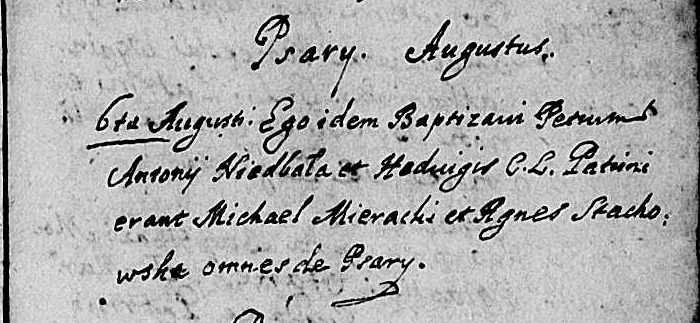 Psary. Augustus.
6ta Augusti. Ego idem Baptizavi Petrum
Antonij Niedbała et Hedvigis C. L. Patrini
erant Michael Mierachi et Agnes Stacho:
wska omnes de Psary.